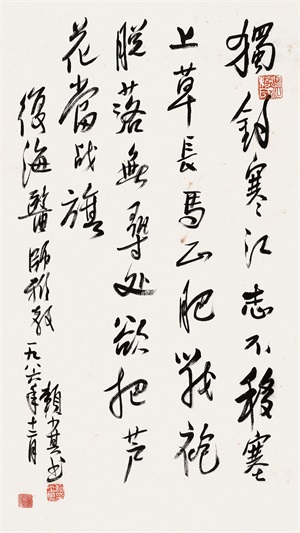 獨釣寒江志不移塞
上草長馬正肥戰袍
脱落無尋处欲把芦
花當战旗
海醫師雅教
賴少其书
一九八六年十二月